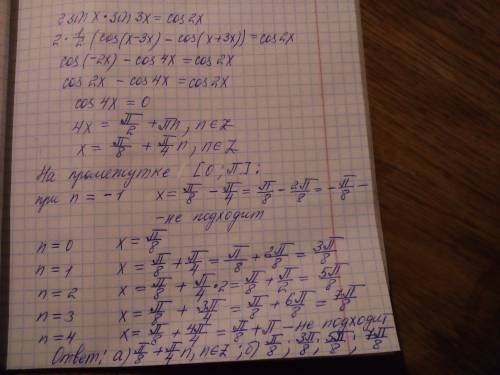 2 sin x · sin 3x = cos 2x
2 · 1/2 (cos(x-3x) - cos(x+3x)) = cos 2x
cos(-2x) - cos 4x = cos 2x
cos 2x - cos 4x = cos 2x
cos 4x = 0
4x = π/2 + πn, n∈Z
x = π/8 + π/4 n, n∈Z
На промежутке [0; π]:
при n = -1 x = π/8 - π/4 = π/8 - 2π/8 = -π/8 -
- не подходит
n = 0 x = π/8
n = 1 x = π/8 + π/4 = π/8 + 2π/8 = 3π/8
n = 2 x = π/8 + π/4 · 2 = π/8 + π/2 = 5π/8
n = 3 x = π/8 + 3π/4 = π/8 + 6π/8 = 7π/8
n = 4 x = π/8 + 4π/4 = π/8 + π - не подходит
Ответ: а) π/8 + π/4 n, n∈Z; б) π/8; 3π/8; 5π/8; 7π/8